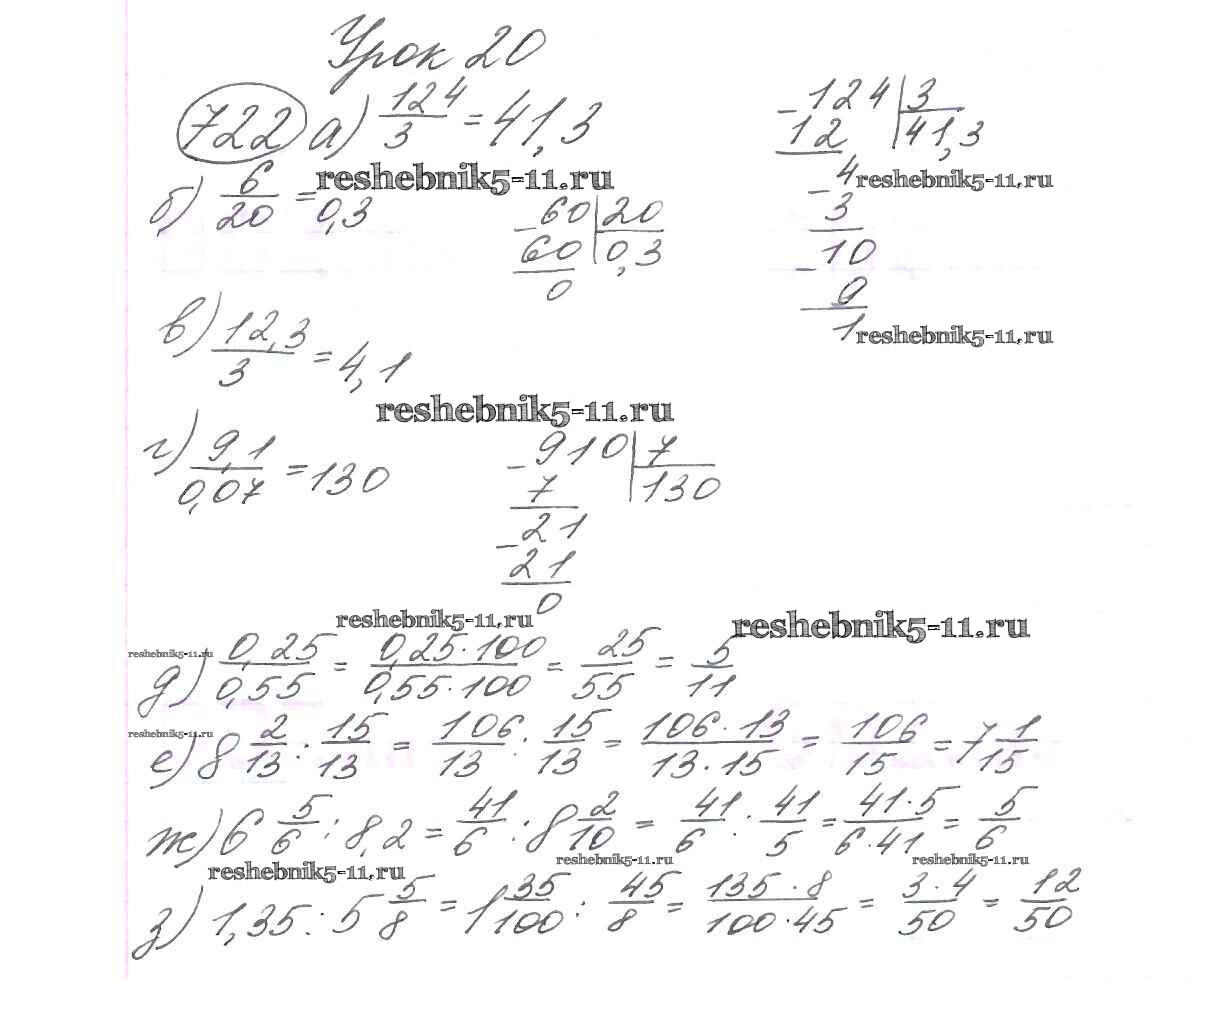 Урок 20
722 а) 124/3 = 41,3
124 | 3
12 | 41,3
4
3
10
9
1
reshebnik5-11.ru
reshebnik5-11.ru
б) 6/20 = 0,3
60 | 20
60 | 0,3
0
reshebnik5-11.ru
в) 12,3/3 = 4,1
reshebnik5-11.ru
г) 9,1/0,07 = 130
910 | 7
7 | 130
21
21
0
reshebnik5-11.ru
reshebnik5-11.ru
reshebnik5-11.ru
д) 0,25/0,55 = 0,25·100/0,55·100 = 25/55 = 5/11
reshebnik5-11.ru
е) 8 2/13 : 15/13 = 106/13 : 15/13 = 106·13/13·15 = 106/15 = 7 1/15
ж) 6 5/6 : 8,2 = 41/6 : 8 2/10 = 41/6 : 41/5 = 41·5/6·41 = 5/6
reshebnik5-11.ru
reshebnik5-11.ru
reshebnik5-11.ru
з) 1,35 : 5 5/8 = 1 35/100 : 45/8 = 135·8/100·45 = 3·4/50 = 12/50